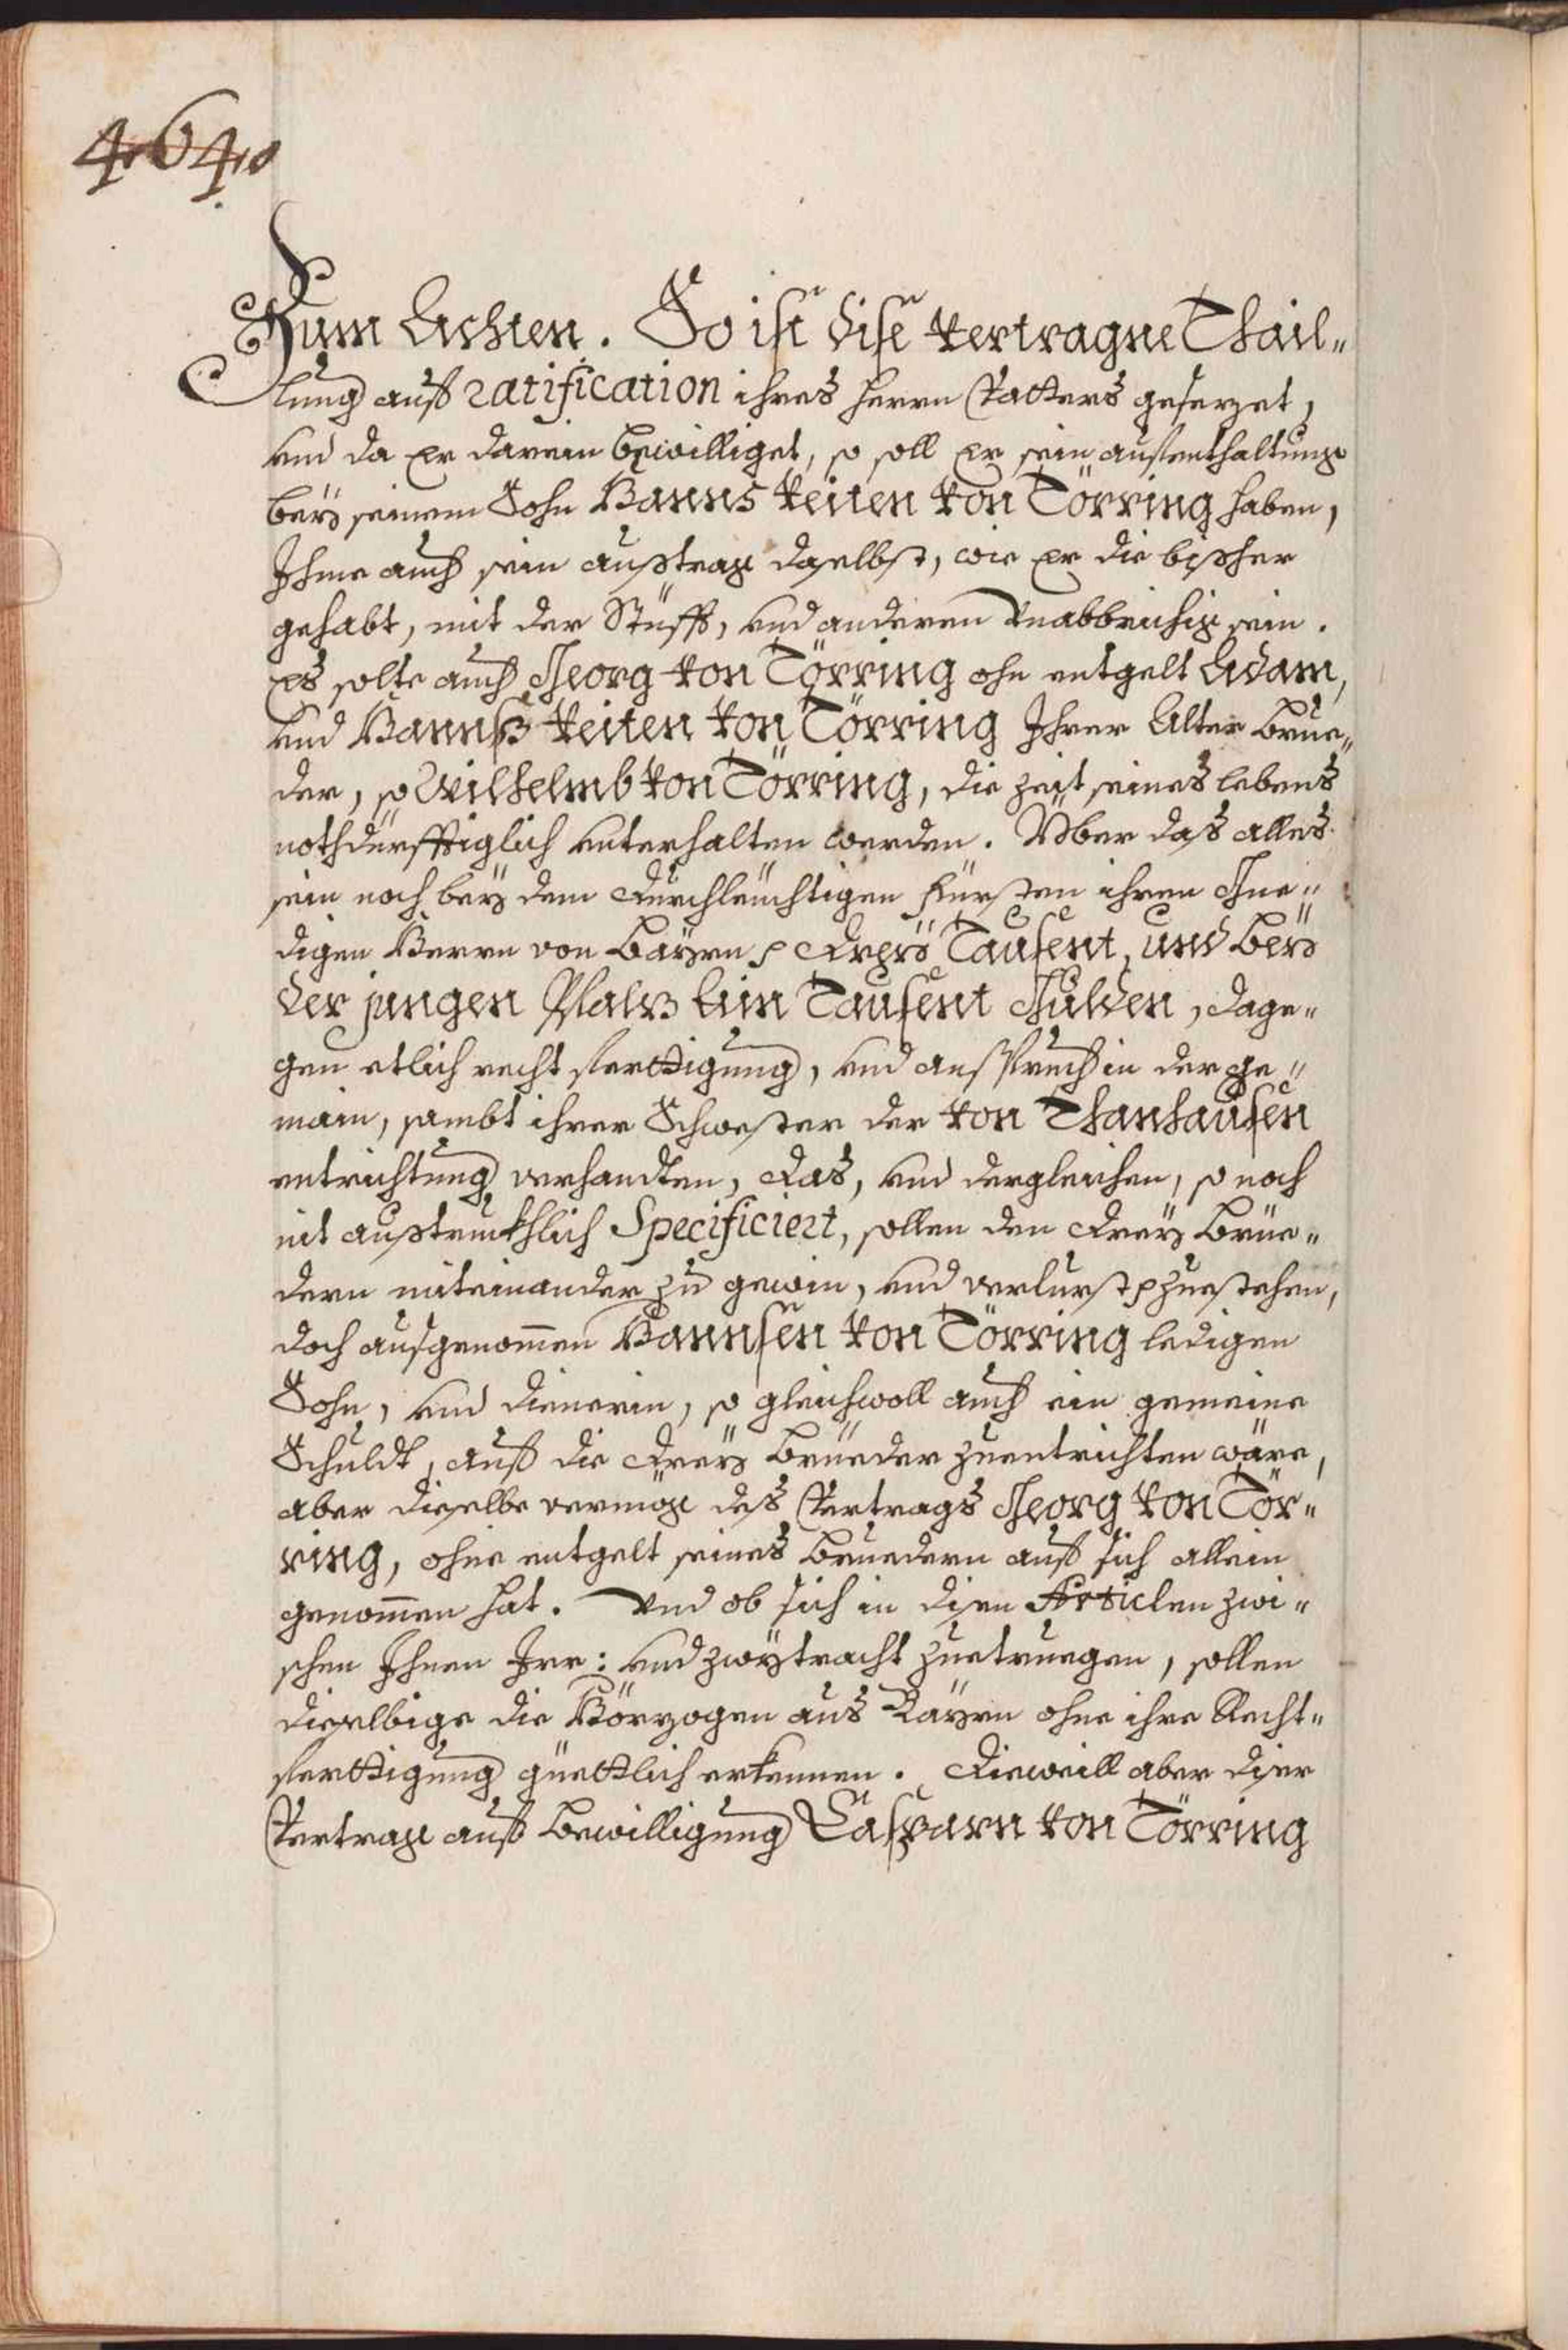 464.
Zum Achten. So ist dise vertragne Thail„
lung auf ratification ihres herrn Vatters gesezet,
und da er darein bewilliget, so soll er sein aufenthaltung
beÿ seinem Sohn Hanns Veiten von Törring haben,
Ihme auch sein austrag daselbst, wie er die bißher
gehabt, mit der Stüfft, und anderen unabbrichig sein.
Es solle auch Georg von Törring ohn entgelt Adam,
und Hannß Veiten von Törring Ihrer Alter Brue„
der, so Wilhelmb von Törring, die zeit seines lebens
nothdurfftiglich unterhalten werden. Über das alles
sein noch beÿ dem Durchleüchtigen Fürsten ihren Gne„
digen Herrn von Baÿrn Dreÿ Tausent, und beÿ
der jungen Pfalz Ain Tausent Gulden, dage„
gen etlich recht ferttigung, und anspruch in der ge„
main, sambt ihrer Schwester der von Thanhausen
entrichtung verhandten, das, und dergleichen, so noch
nit außtruckhlich Specificiert, sollen den dreÿ Brüe„
dern miteinander zu gewin, und verlurst zuestehen,
doch ausgenommen Hannsen von Törring ledigen
Sohn, und dienerin, so gleichwoll auch ein gemeine
Schuldt, auf die dreÿ Brüeder zuentrichten wäre,
aber dieselbe vermög des Vertrags Georg von Tör„
ring, ohne entgelt seines Bruedern auf sich allein
genommen hat. Und ob sich in disen Articlen zwi„
schen Ihnen Irr: und zwÿtracht zuetruegen, sollen
dieselbige die Hörzogen aus Baÿrn ohne ihre Recht„
ferttigung güettlich erkennen. Dieweill aber diser
Vertrag auf bewilligung Casparn von Törring